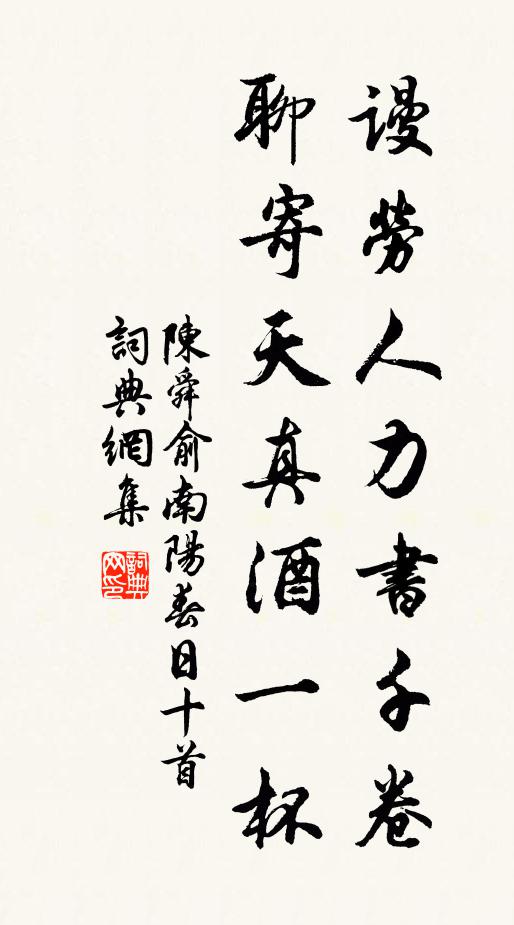 謾勞人力書千卷
聊寄天真酒一杯
陳舜俞南陽春日十首
詞典網集
詞典网印